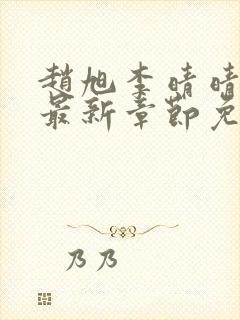 趙旭李晴晴
最新章節免
乃乃